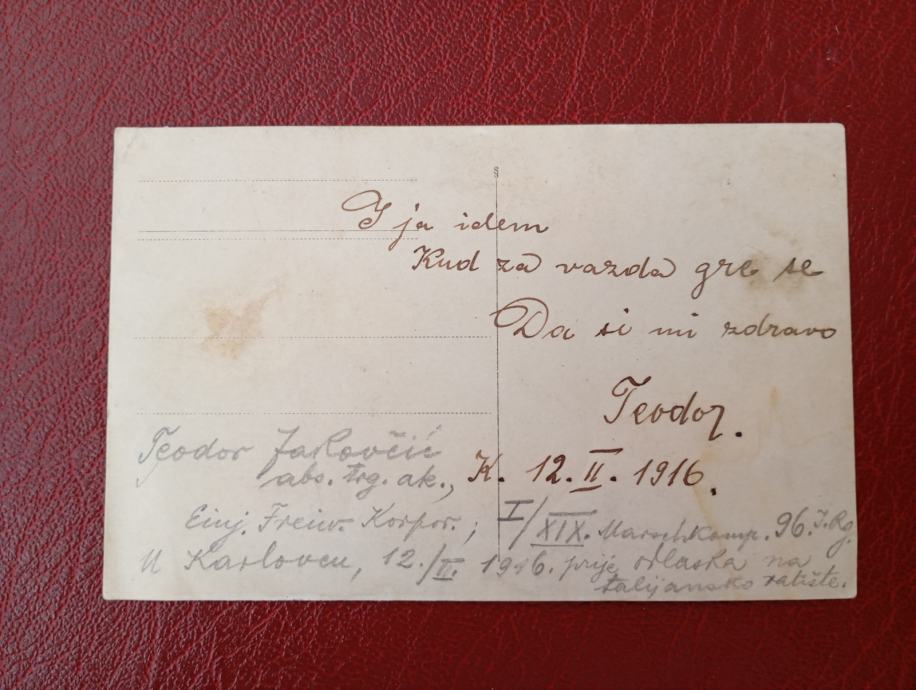 I ja idem
Kud za vazda gre se
Da si mi zdravo
Teodor.
K. 12. II. 1916.
Teodor
abs. trg. ak.,
Einj. Freiw. Korpor.; I/XIX. Marschkomp. 96. I. Rg.
U Karlovcu, 12./II. 1916. prije odlaska na
talijansko ratište.